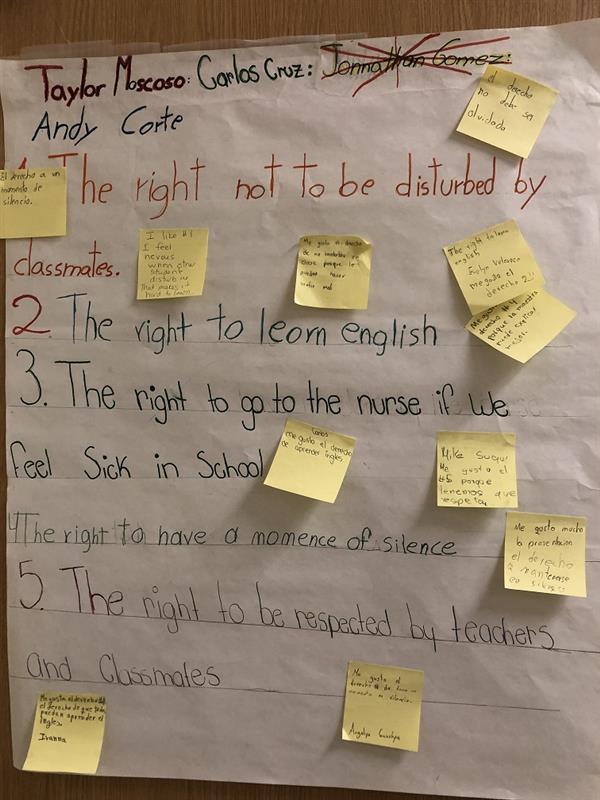 Taylor Moscoso: Carlos Cruz: Jonnathan Gomez:
Andy Corte
El derecho
no debe ser
olvidado
El derecho a un
momento de
silencio.
1. The right not to be disturbed by
classmates.
I like #1
I feel
nevous
when other
student
disturb me
That makes it
hard to learn.
Me gusto el derecho
de no
otros porque le
pueden hacer
sentir mal
The right to learn
english
Evelyn Velasco
me gusta el
derecho 2!!
Me gusto
derecho #4
porque la maestra
puede explicar
mejor.
2. The right to learn english
3. The right to go to the nurse if we
feel Sick in School
Carlos
me gusto el derecho
de aprender ingles
Mike Suqui
Me gusto el
#5 porque
tenemos que
respetar
4 The right to have a momence of silence
Me gusto mucho
la presentacion
el derecho
a mantenerse
en silencio
5. The right to be respected by teachers
and Classmates
Me gusto el
derecho # de
momento de silencio.
Angelya
Me gusta el derecho
el derecho de que todos
puedan aprender el
Ingles.
Ivanna